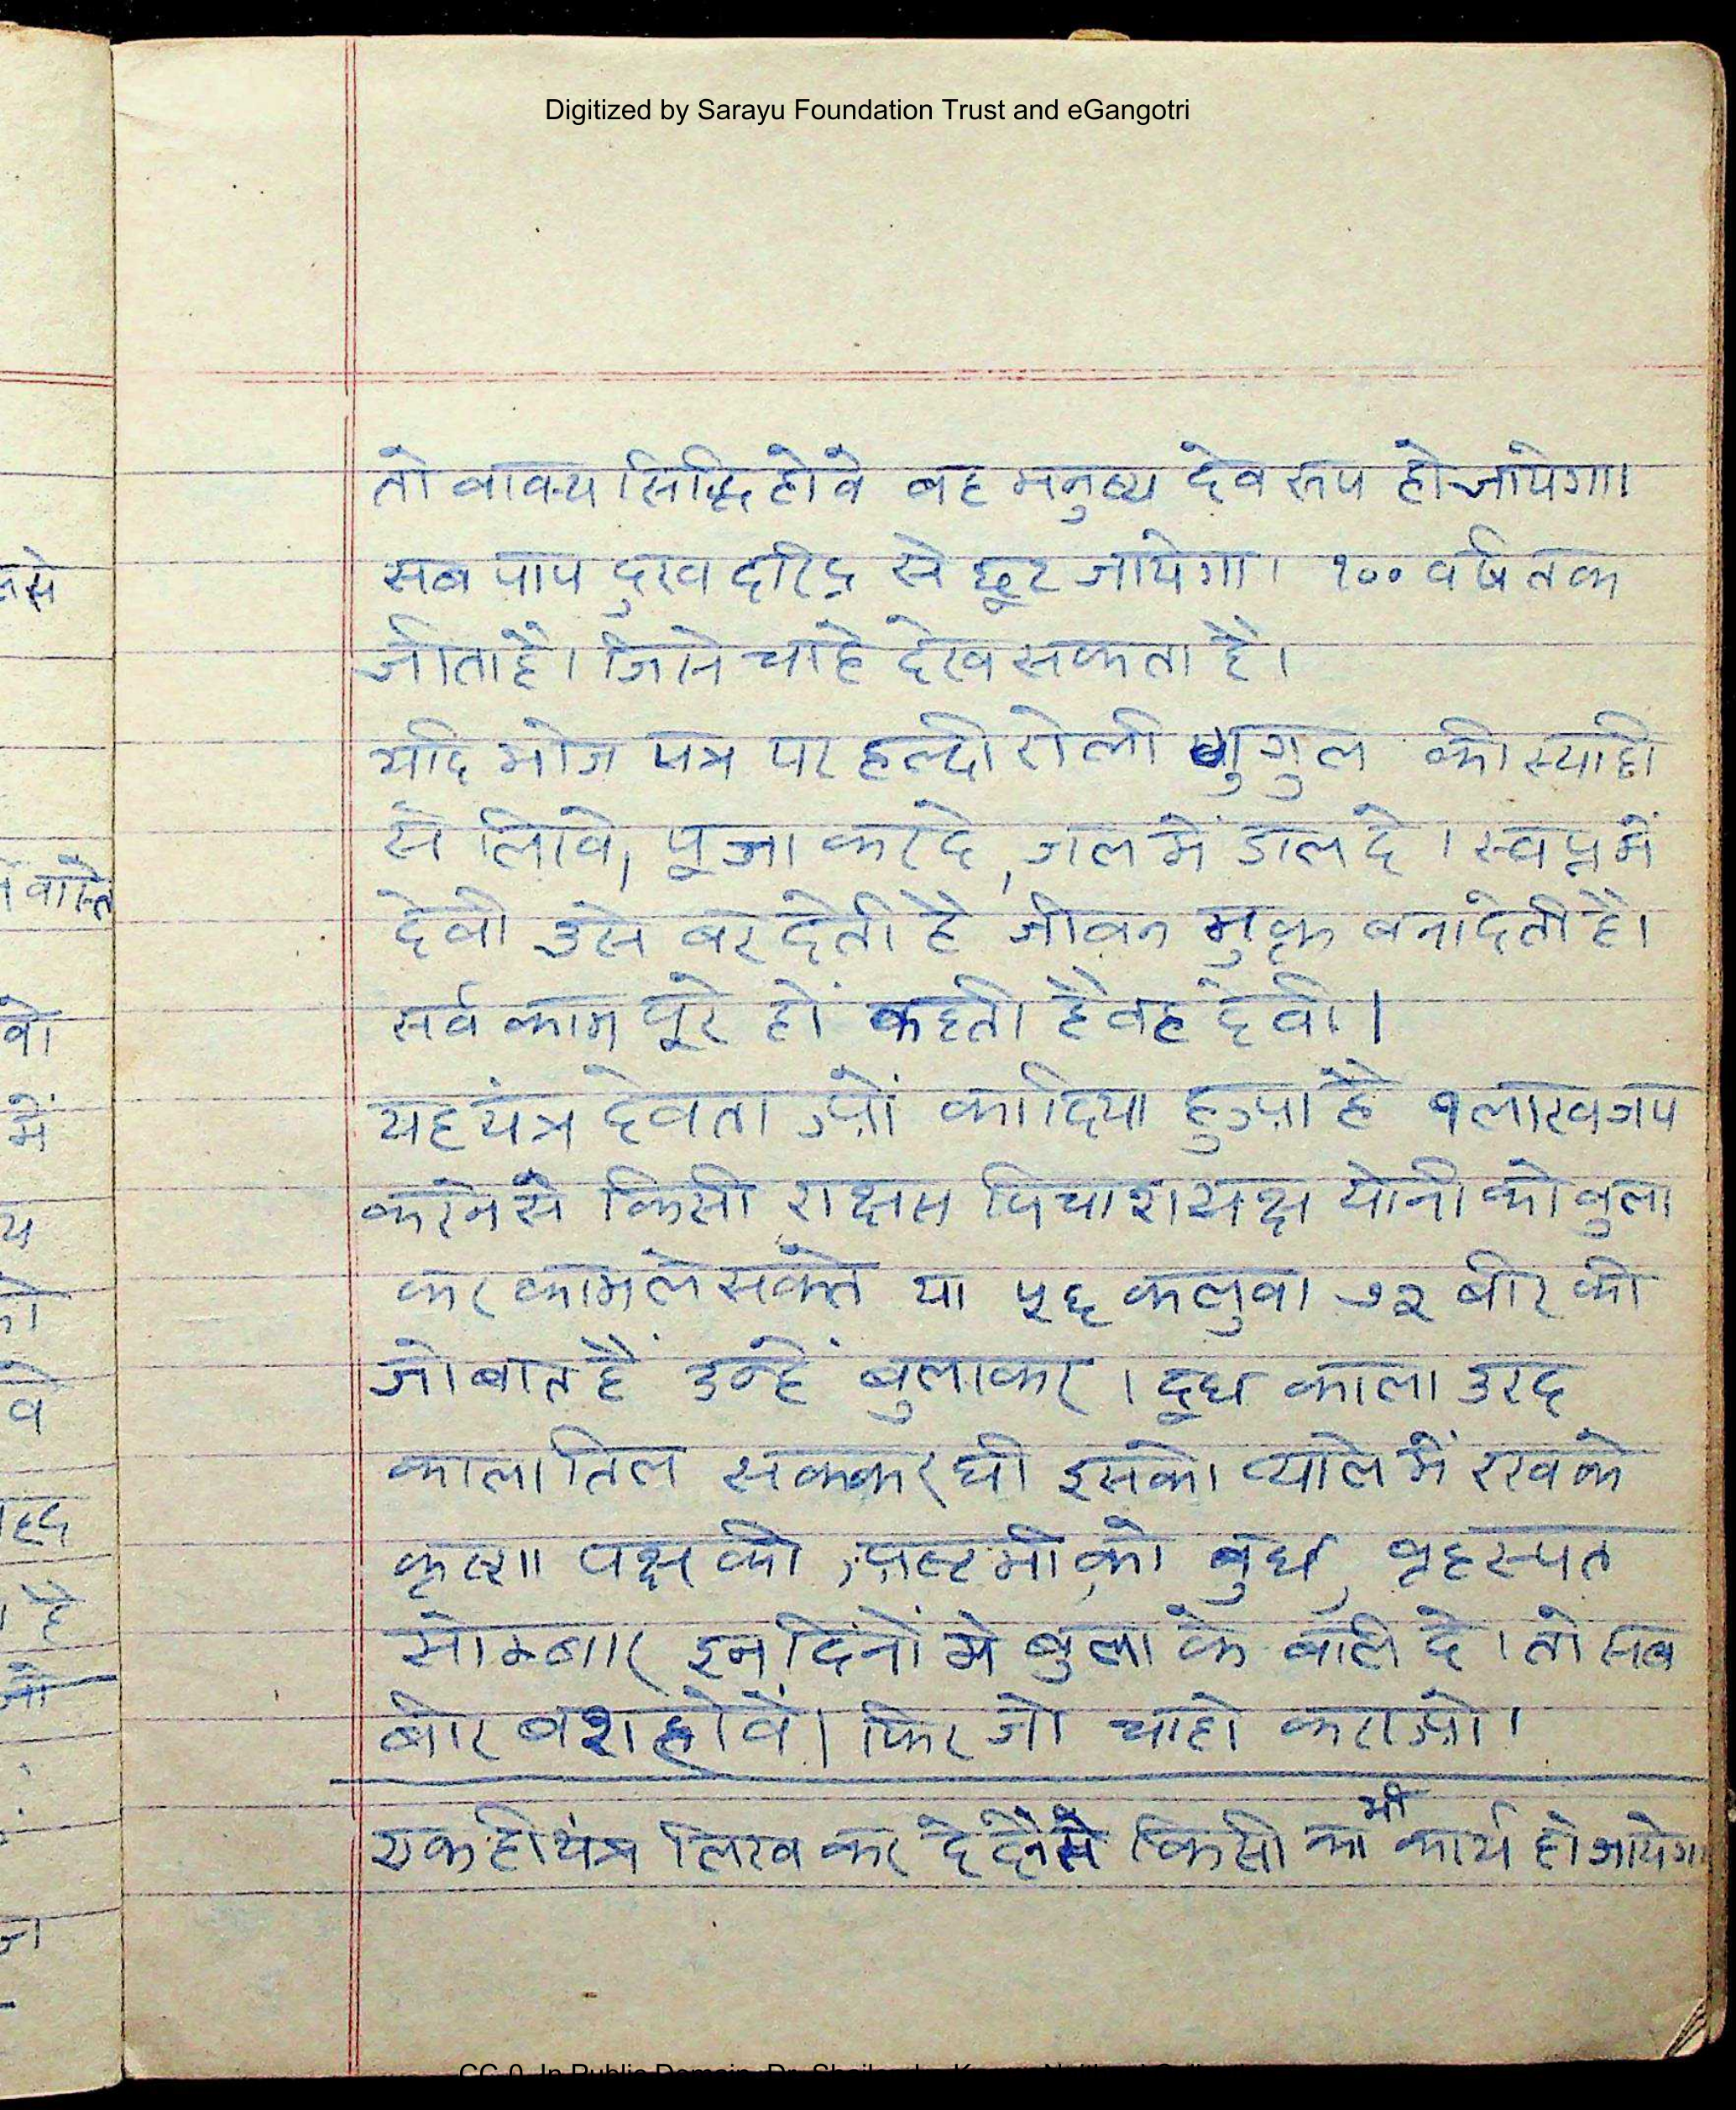 Digitized by Sarayu Foundation Trust and eGangotri
तो वाक्य सिद्धि होवे वह मनुष्य देव रूप हो जायेगा।
सब पाप दुख दरिद्र से छूट जायेगा। १०० वर्ष तक
जीता है। जिसे चाहे देख सकता है।
यदि भोज पत्र पर हल्दी रोली गुगुल की स्याही
से लिखे, पूजा कर दे, गल में डाल दे। स्वप्न में
देवी उसे बर देती है जीवन मुक्त बना देती है।
सर्व काम पूरे हों कहती है वह देवी।
यह यंत्र देवताओं का दिया हुआ है १ लाख जप
करने से किसी राक्षस पिचाश यक्ष योनी को बुला
कर काम ले सकते या ५६ कलुवा ७२ बीर को
जो बात है उन्हें बुलाकर। दूध काला उरद
काला तिल सक्कर घी इसका प्याले में रख के
कृष्ण पक्ष की अष्टमी को बुध, बृहस्पत
सोमबार इन दिनों मे बुला के बलि दे। तो सब
बीर बश होवें। फिर जो चाहो कराओ।
एक ही यंत्र लिख कर दे देने से किसी का भी कार्य हो जायेगा